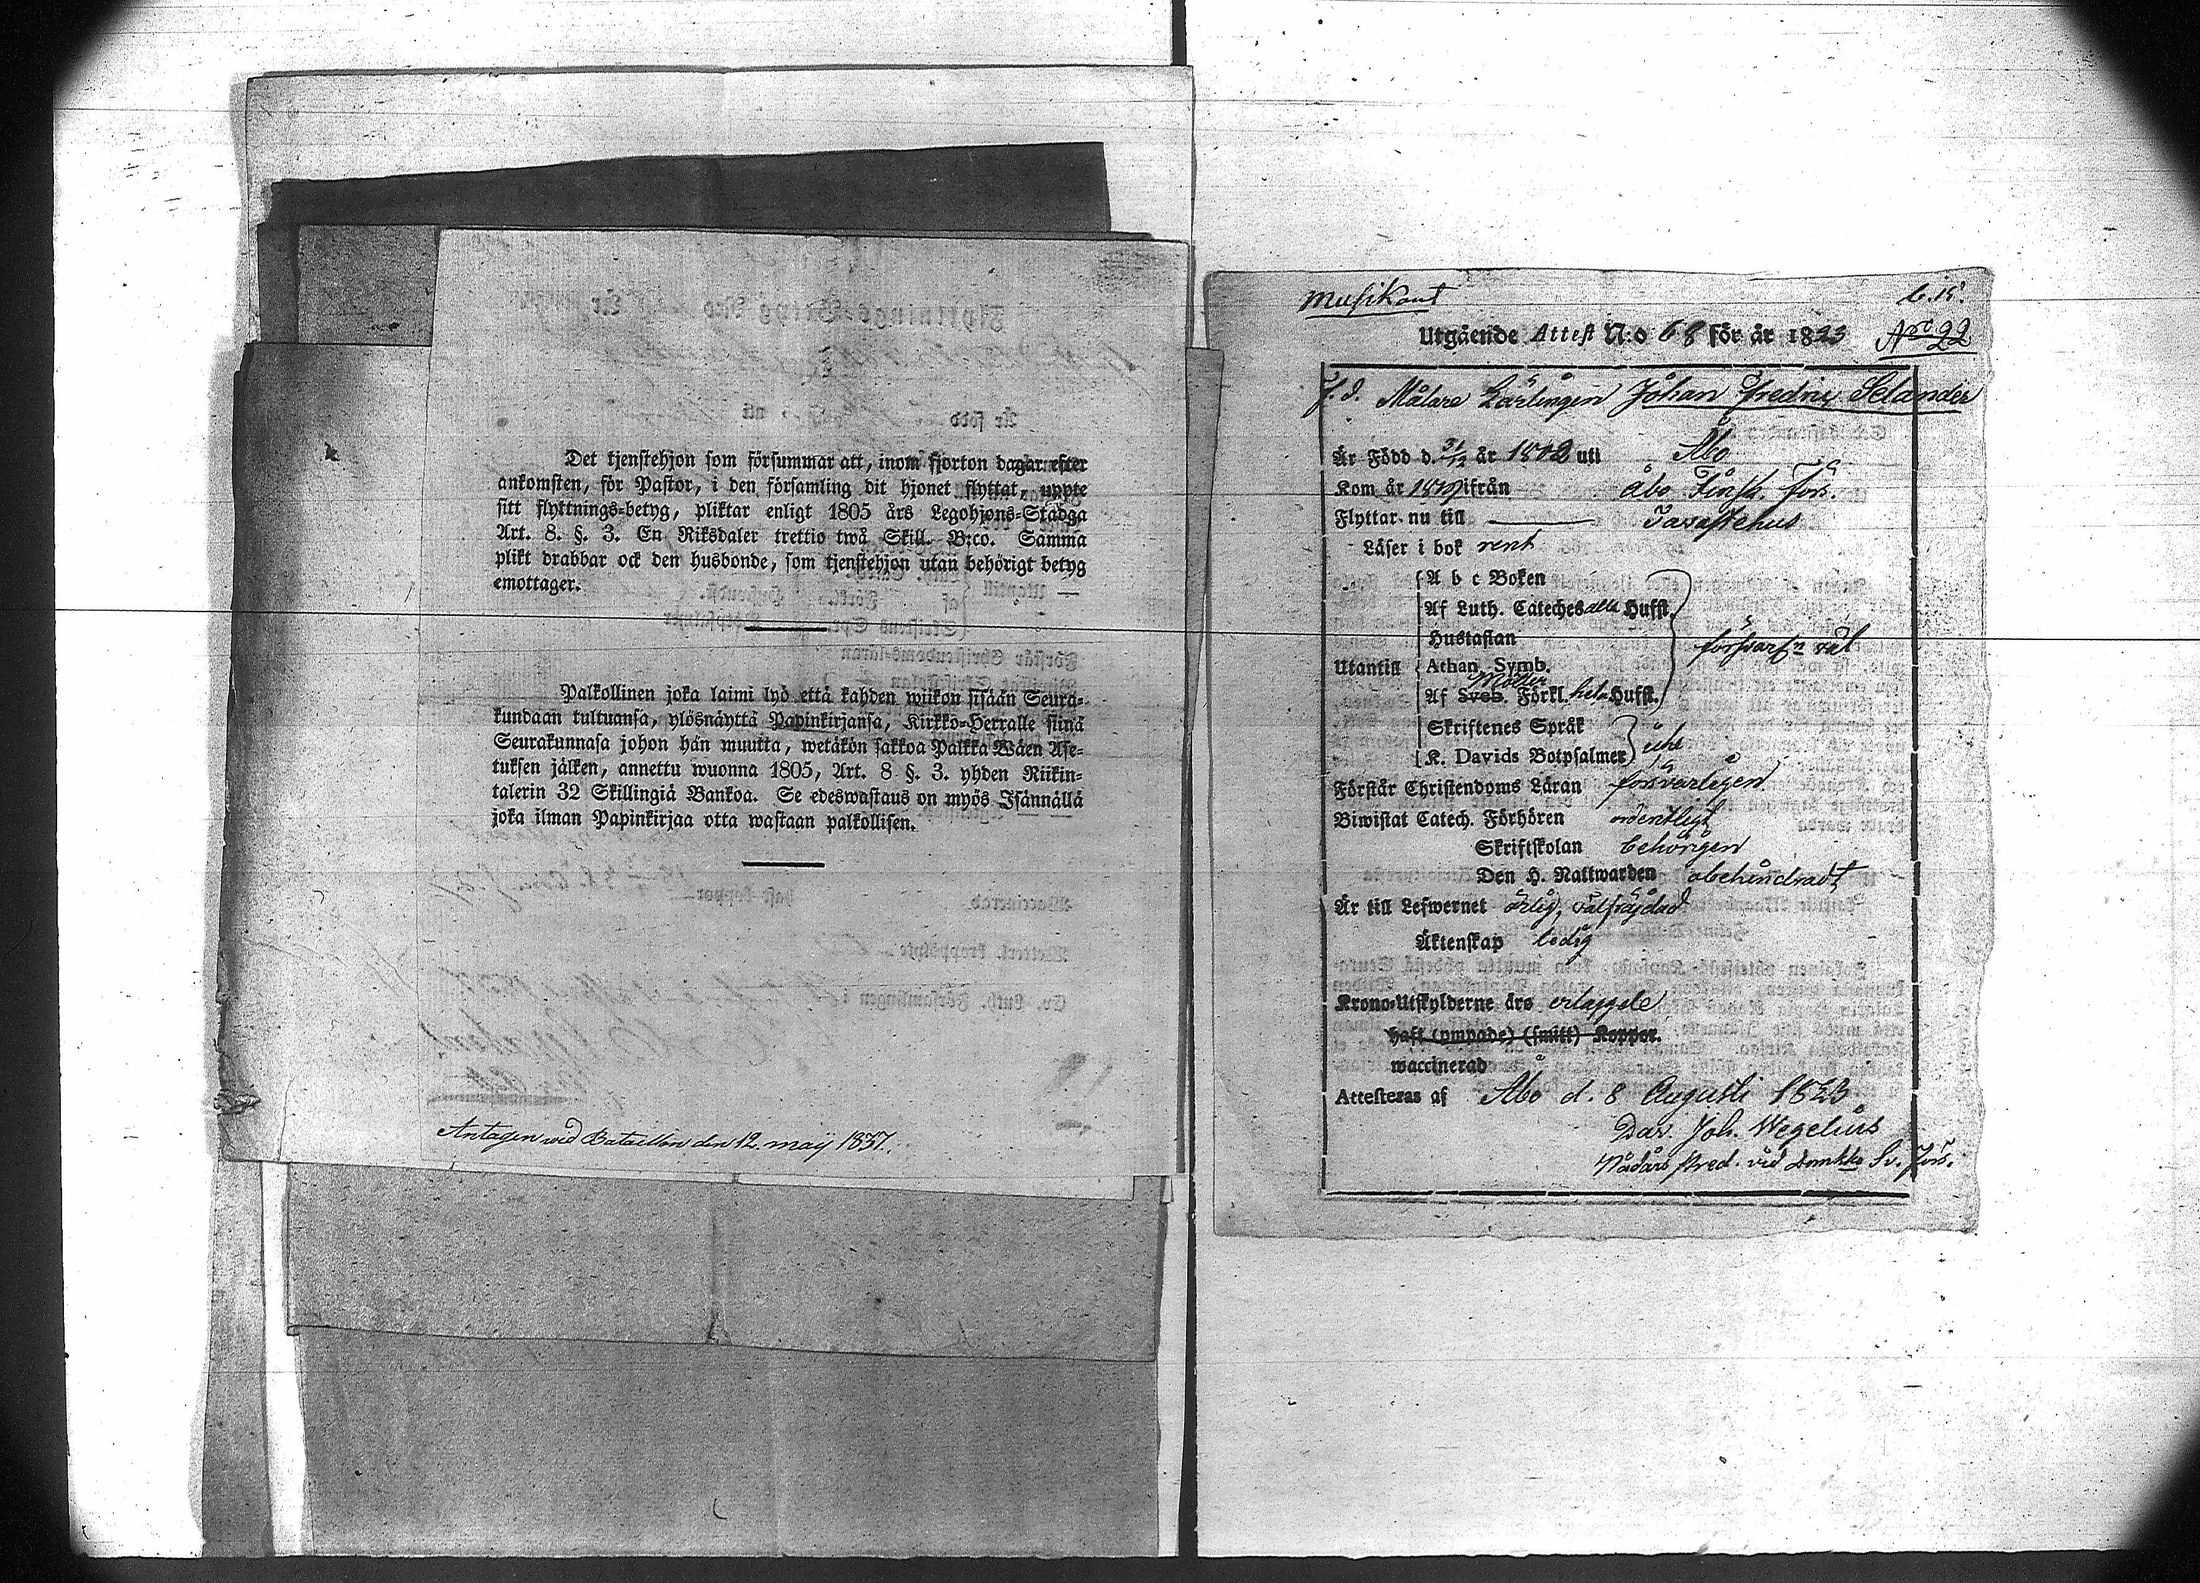 Det tjenstehjon som försummar att, inom fjorton dagar efter
ankomsten, för Pastor, i den församling dit hjonet flyttat, uppte
sitt flyttnings-betyg, pliktar enligt 1805 års Legohjons-Stadga
Art. 8. §. 3. En Riksdaler trettio twå Skill. B:co. Samma
plikt drabbar ock den husbonde, som tjenstehjon utan behörigt betyg
emottager.
Palkollinen joka laimi lyö että kahden wiikon sisään Seura-
kundaan tultuansa, ylösnäyttä Papinkirjansa, Kirkko-Herralle siinä
Seurakunnasa johon hän muutta, wetäkön sakkoa Palkka Wäen Ase-
tuksen jälken, annettu wuonna 1805, Art. 8 §. 3. yhden Riikin-
talerin 32 Skillingiä Bankoa. Se edeswastaus on myös Isännällä
joka ilman Papinkirjaa otta wastaan palkollisen.
Antagen wid Bataillon den 12. maij 1837.
Musikant
Utgående Attest N:o 68 för år 1823 No 22
f. d. Målare Lärlingen Johan Fredric Selander
Är Född d. 31/12 år 1802 uti Åbo
Kom år ifrån Åbo Finsk. Förs.
Flyttar nu till Tavastehus
Läser i bok rent
A b c Boken
Af Luth. Cateches alla Hufst.
Hustaflan
försvarl:n väl
Utantill Athan Symb.
Möller
Af Sveb. Förkl. hela Hufst.
Skriftenes Språk
icke
K. Davids Botpsalmer
Förstår Christendoms Läran försvarligen
Biwistat Catech. Förhören ordentligt
Skriftskolan behörigen
Den H. Nattwarden obehindradt
Är till Lefwernet ärlig, välfräjdad
Äktenskap ledig
Krono-Utskylderne års erlaggde
haft (ympade) (smitt) Koppor.
waccinerad
Attesteras af Åbo d. 8 Augusti 1823
Dav. Joh. Wegelius
Nådårs Pred. vid Domkka Sv. Förs.